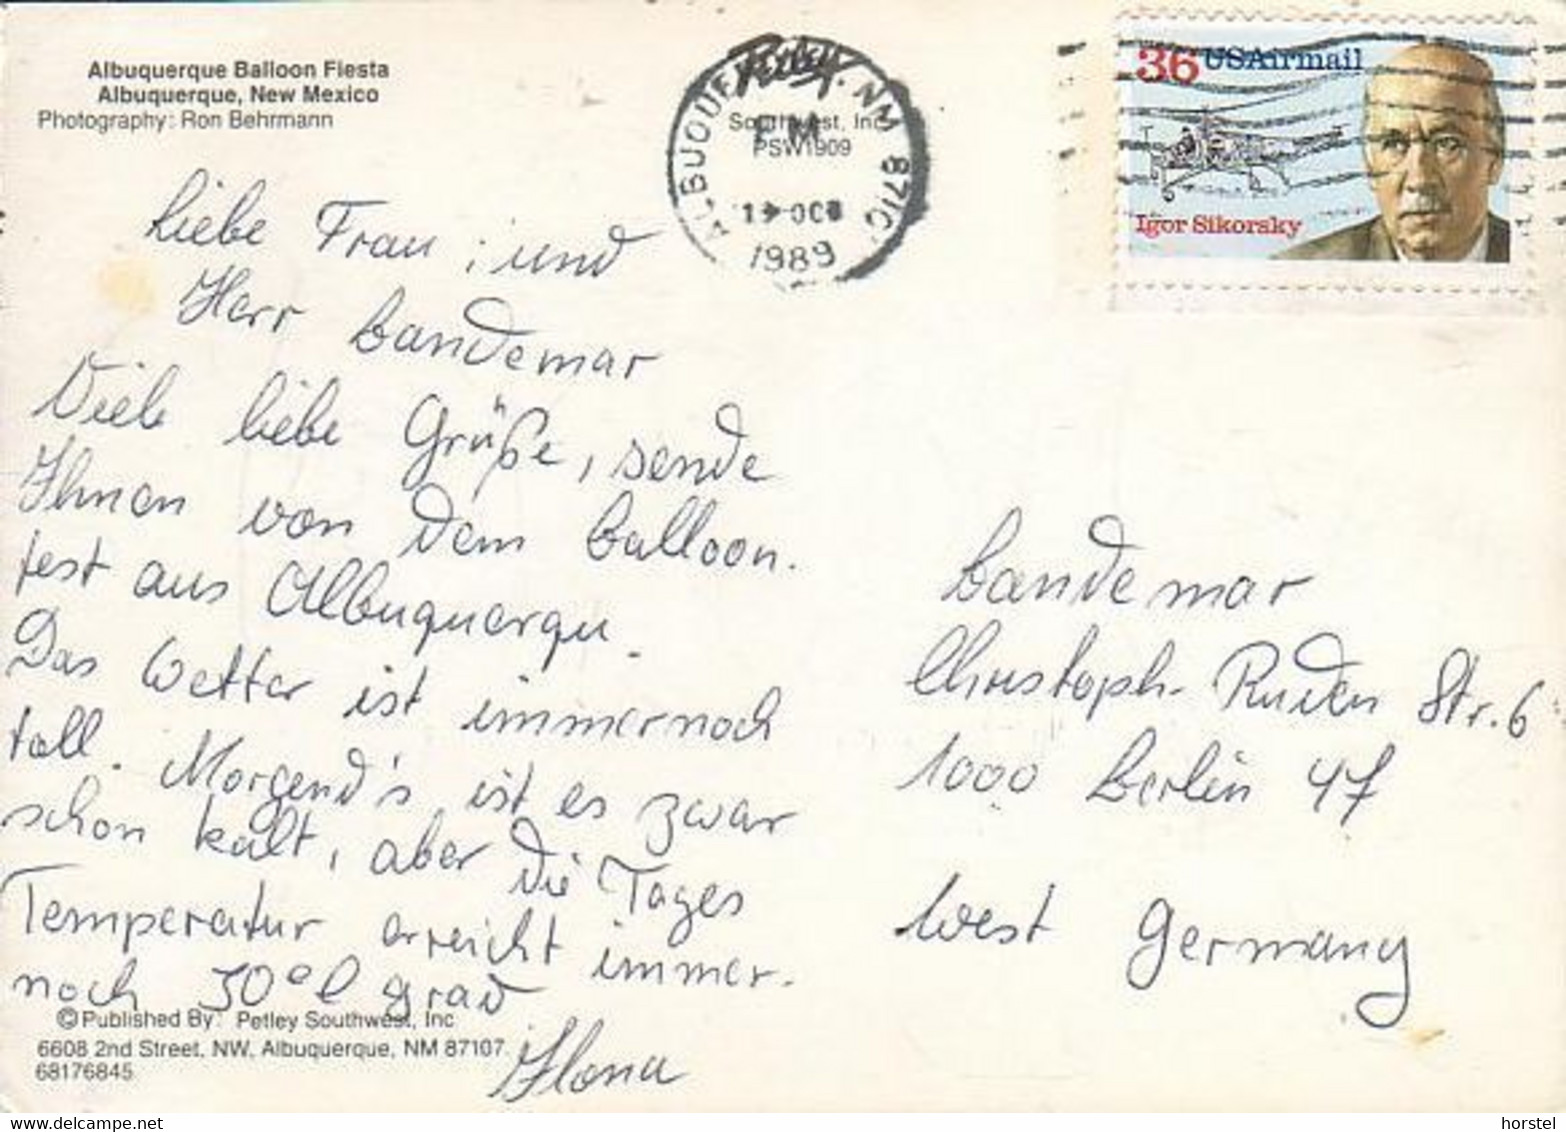 Albuquerque Balloon Fiesta
Albuquerque, New Mexico
Photography: Ron Behrmann
Petley
Southwest, Inc
PSW1909
ALBUQUE NM 871
PM
OC
1989
36 USAirmail
Igor Sikorsky
Liebe Frau, und
Herr Bandemar
Viele liebe Grüße, sende
Ihnen von dem Balloon.
fest aus Albuquerqu.
Das Wetter ist immernoch
toll. Morgend's ist es zwar
schon kalt, aber die Tages
Temperatur erreicht immer.
noch 30° grad
Ilona
Bandemar
Christoph-Ruden Str. 6
1000 Berlin 47
West Germany
©Published By: Petley Southwest, Inc
6608 2nd Street, NW, Albuquerque, NM 87107
68176845
horstel